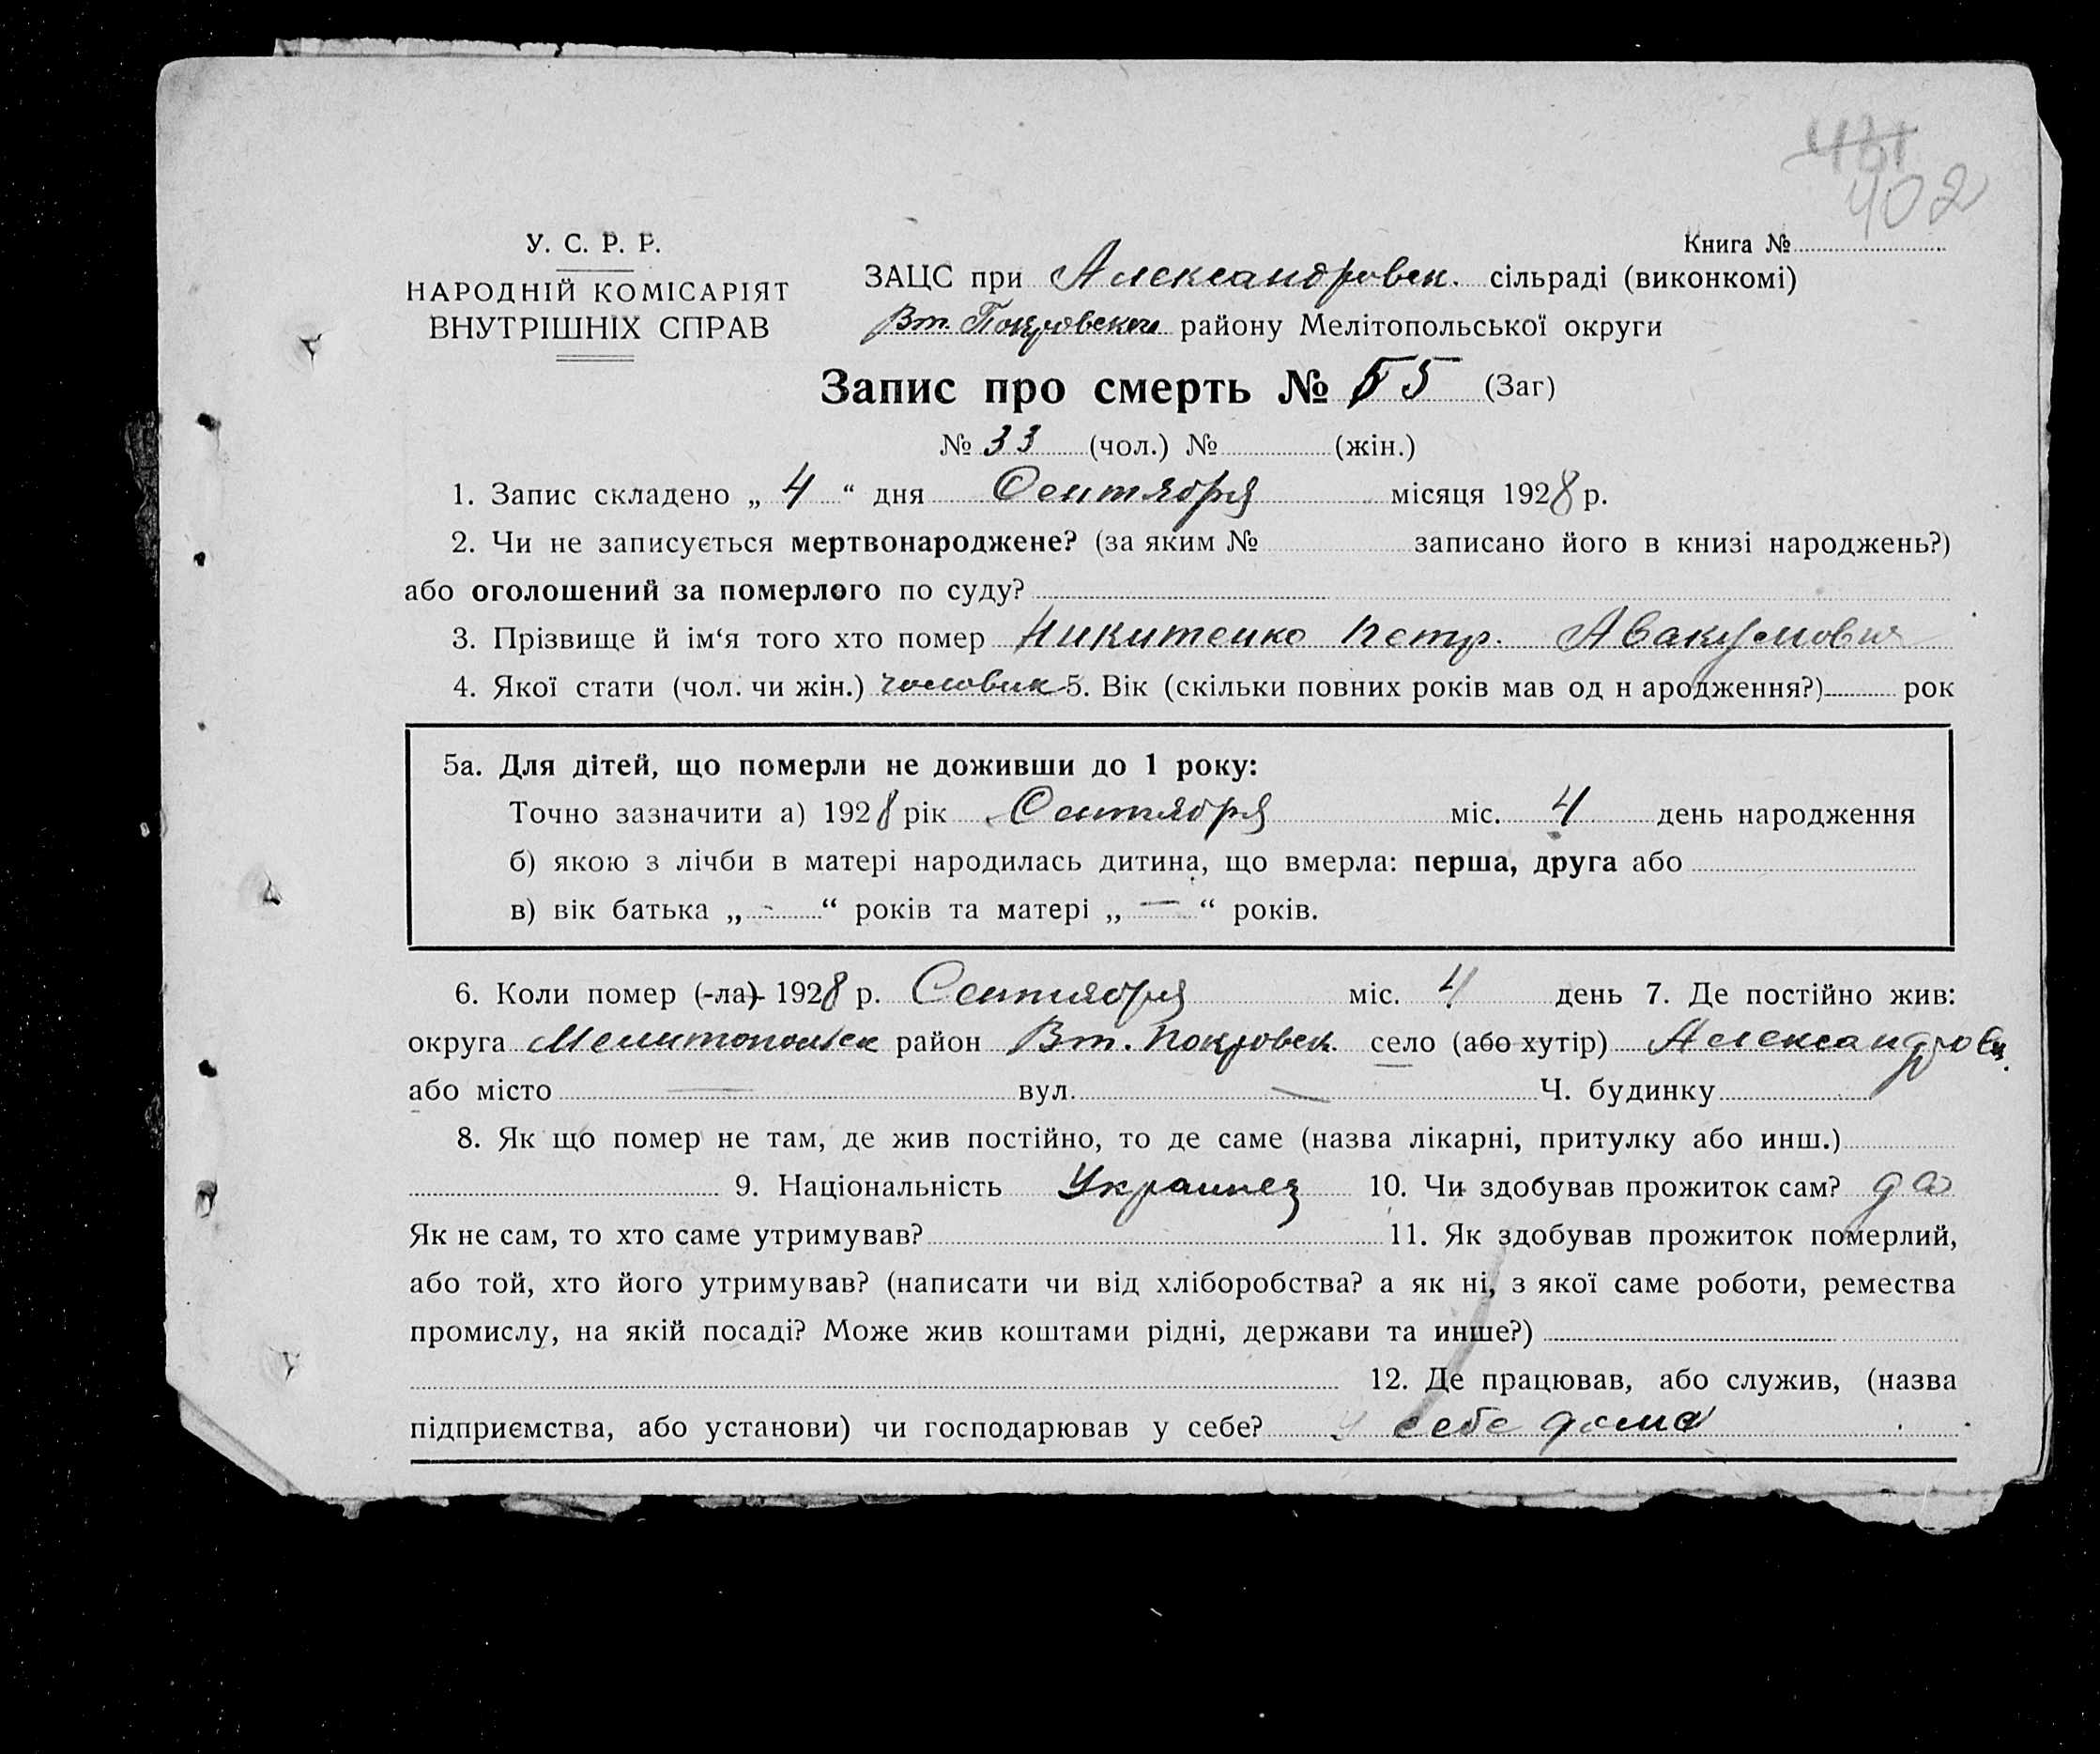 431
402
У. С. Р. Р.
Книга №
НАРОДНІЙ КОМІСАРІЯТ
ВНУТРІШНІХ СПРАВ
ЗАЦС при Александровск. сільраді (виконкомі)
Вт. Покровского району Мелітопольської округи
Запис про смерть № 55 (Заг)
№ 33 (чол.) № (жін.)
1. Запис складено „ 4 “ дня Сентября місяця 1928 р.
2. Чи не записується мертвонароджене? (за яким № записано його в книзі народжень?)
або оголошений за померлого по суду?
3. Прізвище й ім‘я того хто помер Никитенко Петр. Авакумович
4. Якої стати (чол. чи жін.) чоловик 5. Вік (скільки повних років мав од н ародження?) рок
5а. Для дітей, що померли не доживши до 1 року:
Точно зазначити а) 1928 рік Сентября міс. 4 день народження
б) якою з лічби в матері народилась дитина, що вмерла: перша, друга або
в) вік батька „ - “ років та матері „ — “ років.
6. Коли помер (-ла) 1928 р. Сентября міс. 4 день 7. Де постійно жив:
округа Мелитопольск район Вт. Покровск. село (або хутір) Александровк.
або місто — вул. — Ч. будинку
8. Як що помер не там, де жив постійно, то де саме (назва лікарні, притулку або инш.)
9. Національність Украинец 10. Чи здобував прожиток сам? да
Як не сам, то хто саме утримував? 11. Як здобував прожиток померлий,
або той, хто його утримував? (написати чи від хліборобства? а як ні, з якої саме роботи, ремества
промислу, на якій посаді? Може жив коштами рідні, держави та инше?)
12. Де працював, або служив, (назва
підприємства, або установи) чи господарював у себе? у себе дома